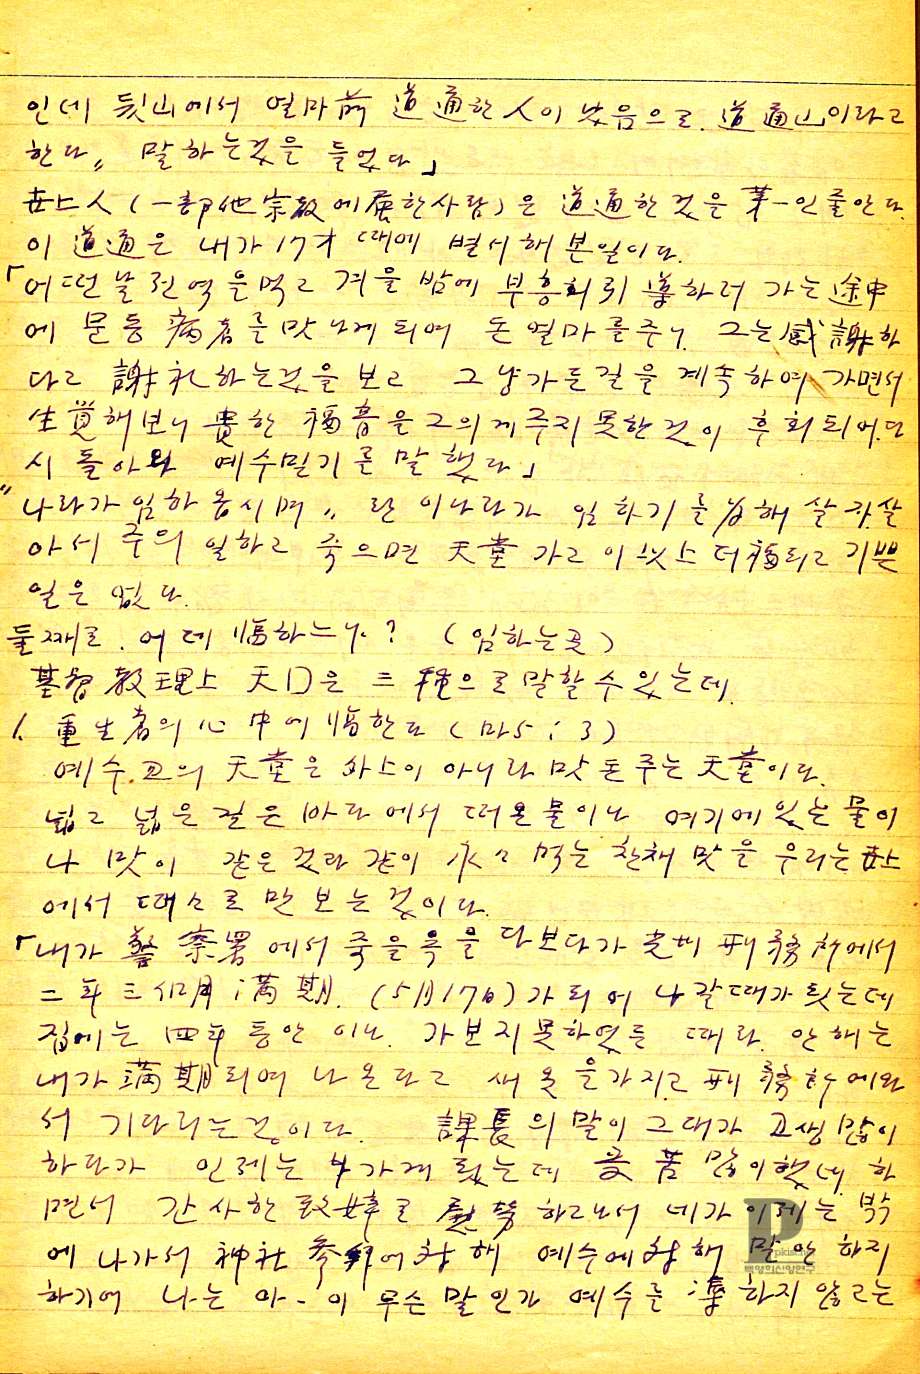 인데 뒷山에서 얼마前 道通한 人이 났음으로. 道通山이라고
한다〃 말하는것을 들었다」
世上人 (一部他宗敎에 屬한사람)은 道通한 것을 第一인줄안다.
이 道通은 내가 17才 때에 벌서해 본일이다.
「어떤날 전역을먹고 겨울밤에 부흥회引導하러 가는途中
에 문둥病者를 맛나게 되여 돈 얼마를주니. 그는 感謝하
다고 謝礼하는것을 보고 그냥가든길을 계속하여 가면서
生覺해보니 貴한 福音을 그의게 주지 못한것이 후회되어.다
시 돌아와 예수믿기를 말했다」
〃나라가 임하옵시며〃 란 이나라가 임하기를 爲해 살자.살
아서 주의 일하고 죽으면 天堂 가고 이 以上 더福되고 기쁜
일은 없다.
둘째로. 어데 臨하느냐? (임하는곳)
基督敎理上 天囗은 三種으로 말할수있는데.
1. 重生者의 心中에 臨한다 (마5:3)
예수.교의 天堂은 外上이 아니라 맛돈주는 天堂이다.
넓고 넓은 길은 바다에서 떠온물이나 여기에있는 물이
나 맛이 같은것과 같이 永々 먹는 찬채 맛을 우리는 世上
에서 때々로 맛보는 것이다.
「내가 警察署에서 죽을욕을 다보다가 光州 刑務所에서
二年三個月 滿期. (5月17日)가 되여 나갈때가 됬는데
집에는 四年동안 이나. 가보지못하였든 때라. 안해는
내가 滿期되여 나온다고 새옷을가지고 刑務所에와
서 기다리는것이다. 課長의 말이 그대가 고생 많이
하다가 인제는 나가게 됬는데 受苦많이했네 하
면서 간사한 態度로 慰勞하고나서 네가 이제는 밖
에 나가서 神社參拜에 對해 예수에 對해 말안하지
하기에 나는 아- 이 무슨 말인가 예수를 導하지 않고는
pkist
백영희신앙연구